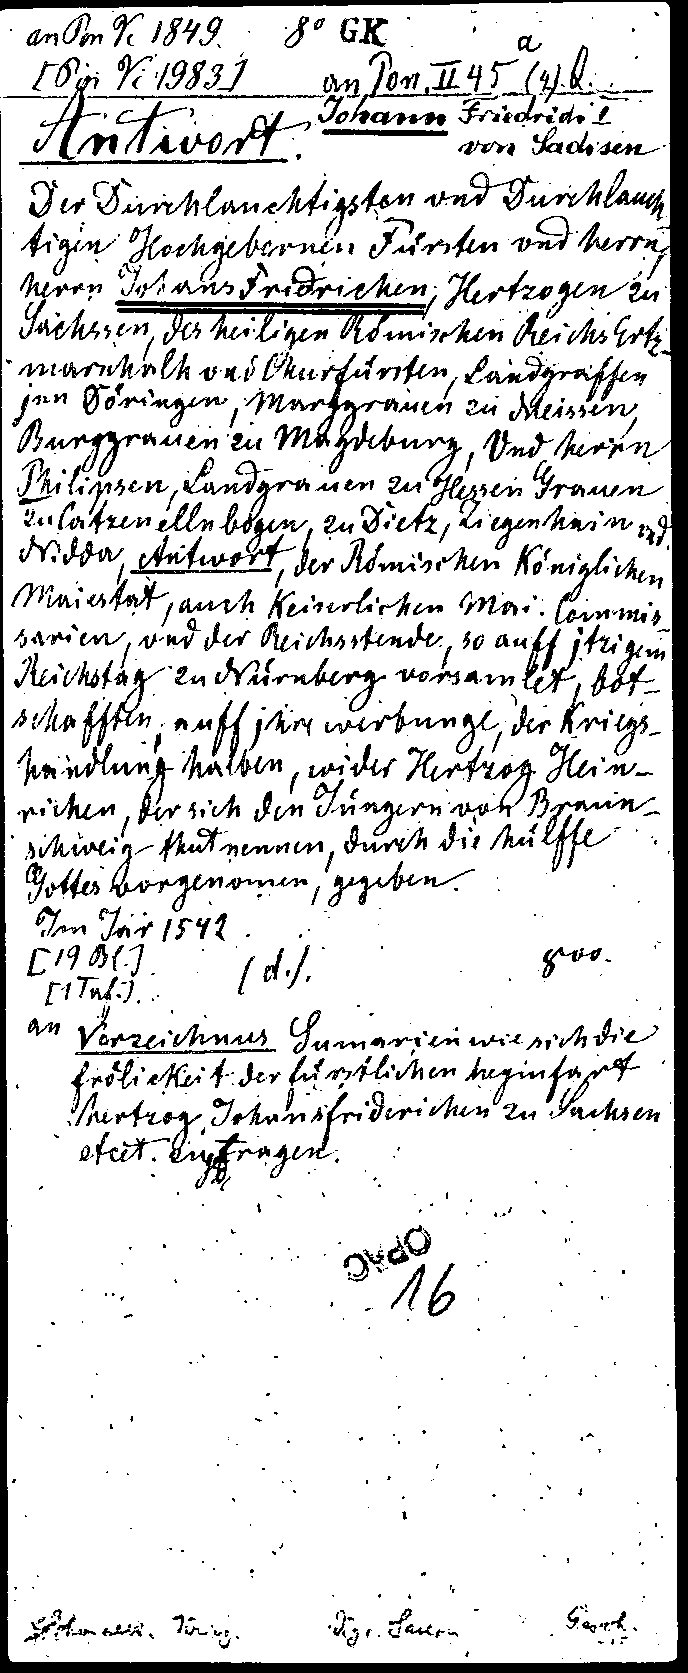 an Pon Vc 1849. 8° GK
[Pon Vc 1983] an Pon. II 45 a (4) Q.
Antwort. Johann Friedrich I
von Sachsen
Der Durchlauchtigsten vnd Durchlauch
tigen Hochgebornen Fürsten vnd herrn,
herrn Johans Fridrichen, Hertzogen zu
Sachssen, des heiligen Römischen Reichs Ertz-
marschalh vnd Churfürsten, Landgraffen
jnn Döringen, Marggrauen zu Meissen,
Burggrauen zu Magdeburg, Vnd herrn
Philipsen, Landgrauen zu Hessen Grauen
zu Catzenellnbogen, zu Dietz, Ziegenhain vnd
Nidda, Antwort, der Römischen Königlichen
Maiestat, auch Keiserlichen Mai. Commis-
sarien, vnd der Reichsstende, so auff jtzigem
Reichstag zu Nürnberg vorsamlet, bot-
schafften, auff jhre werbunge, der Kriegs-
handlung halben, wider Hertzog Hein-
richen, der sich den Jüngern von Braun-
schweig thut nennen, durch die hülffe
Gottes vorgenomen, gegeben.
Im Jar 1542.
[19 Bl.]
[1 Taf.]. (d.). 800.
an Vorzeichnus Sumarien wie sich die
frölickeit der fürstlichen heginfart
hertzog Johansfriderichen zu Sachsen
etcet. zugetragen.
OPAC
16